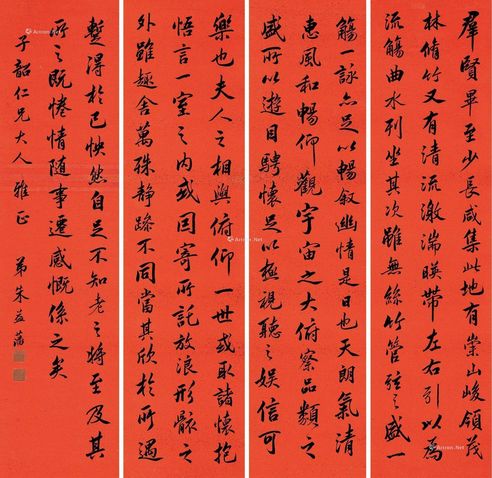 羣賢畢至少長咸集此地有崇山峻領茂
林脩竹又有清流激湍暎帶左右引以為
流觴曲水列坐其次雖無絲竹管弦之盛一
觴一詠亦足以暢叙幽情是日也天朗氣清
惠風和暢仰觀宇宙之大俯察品類之
盛所以遊目騁懷足以極視聽之娛信可
樂也夫人之相與俯仰一世或取諸懷抱
悟言一室之內或因寄所託放浪形骸之
外雖趣舍萬殊静躁不同當其欣於所遇
暫得於己怏然自足不知老之將至及其
所之既惓情隨事遷感慨係之矣
子韶仁兄大人雅正 弟朱益藩